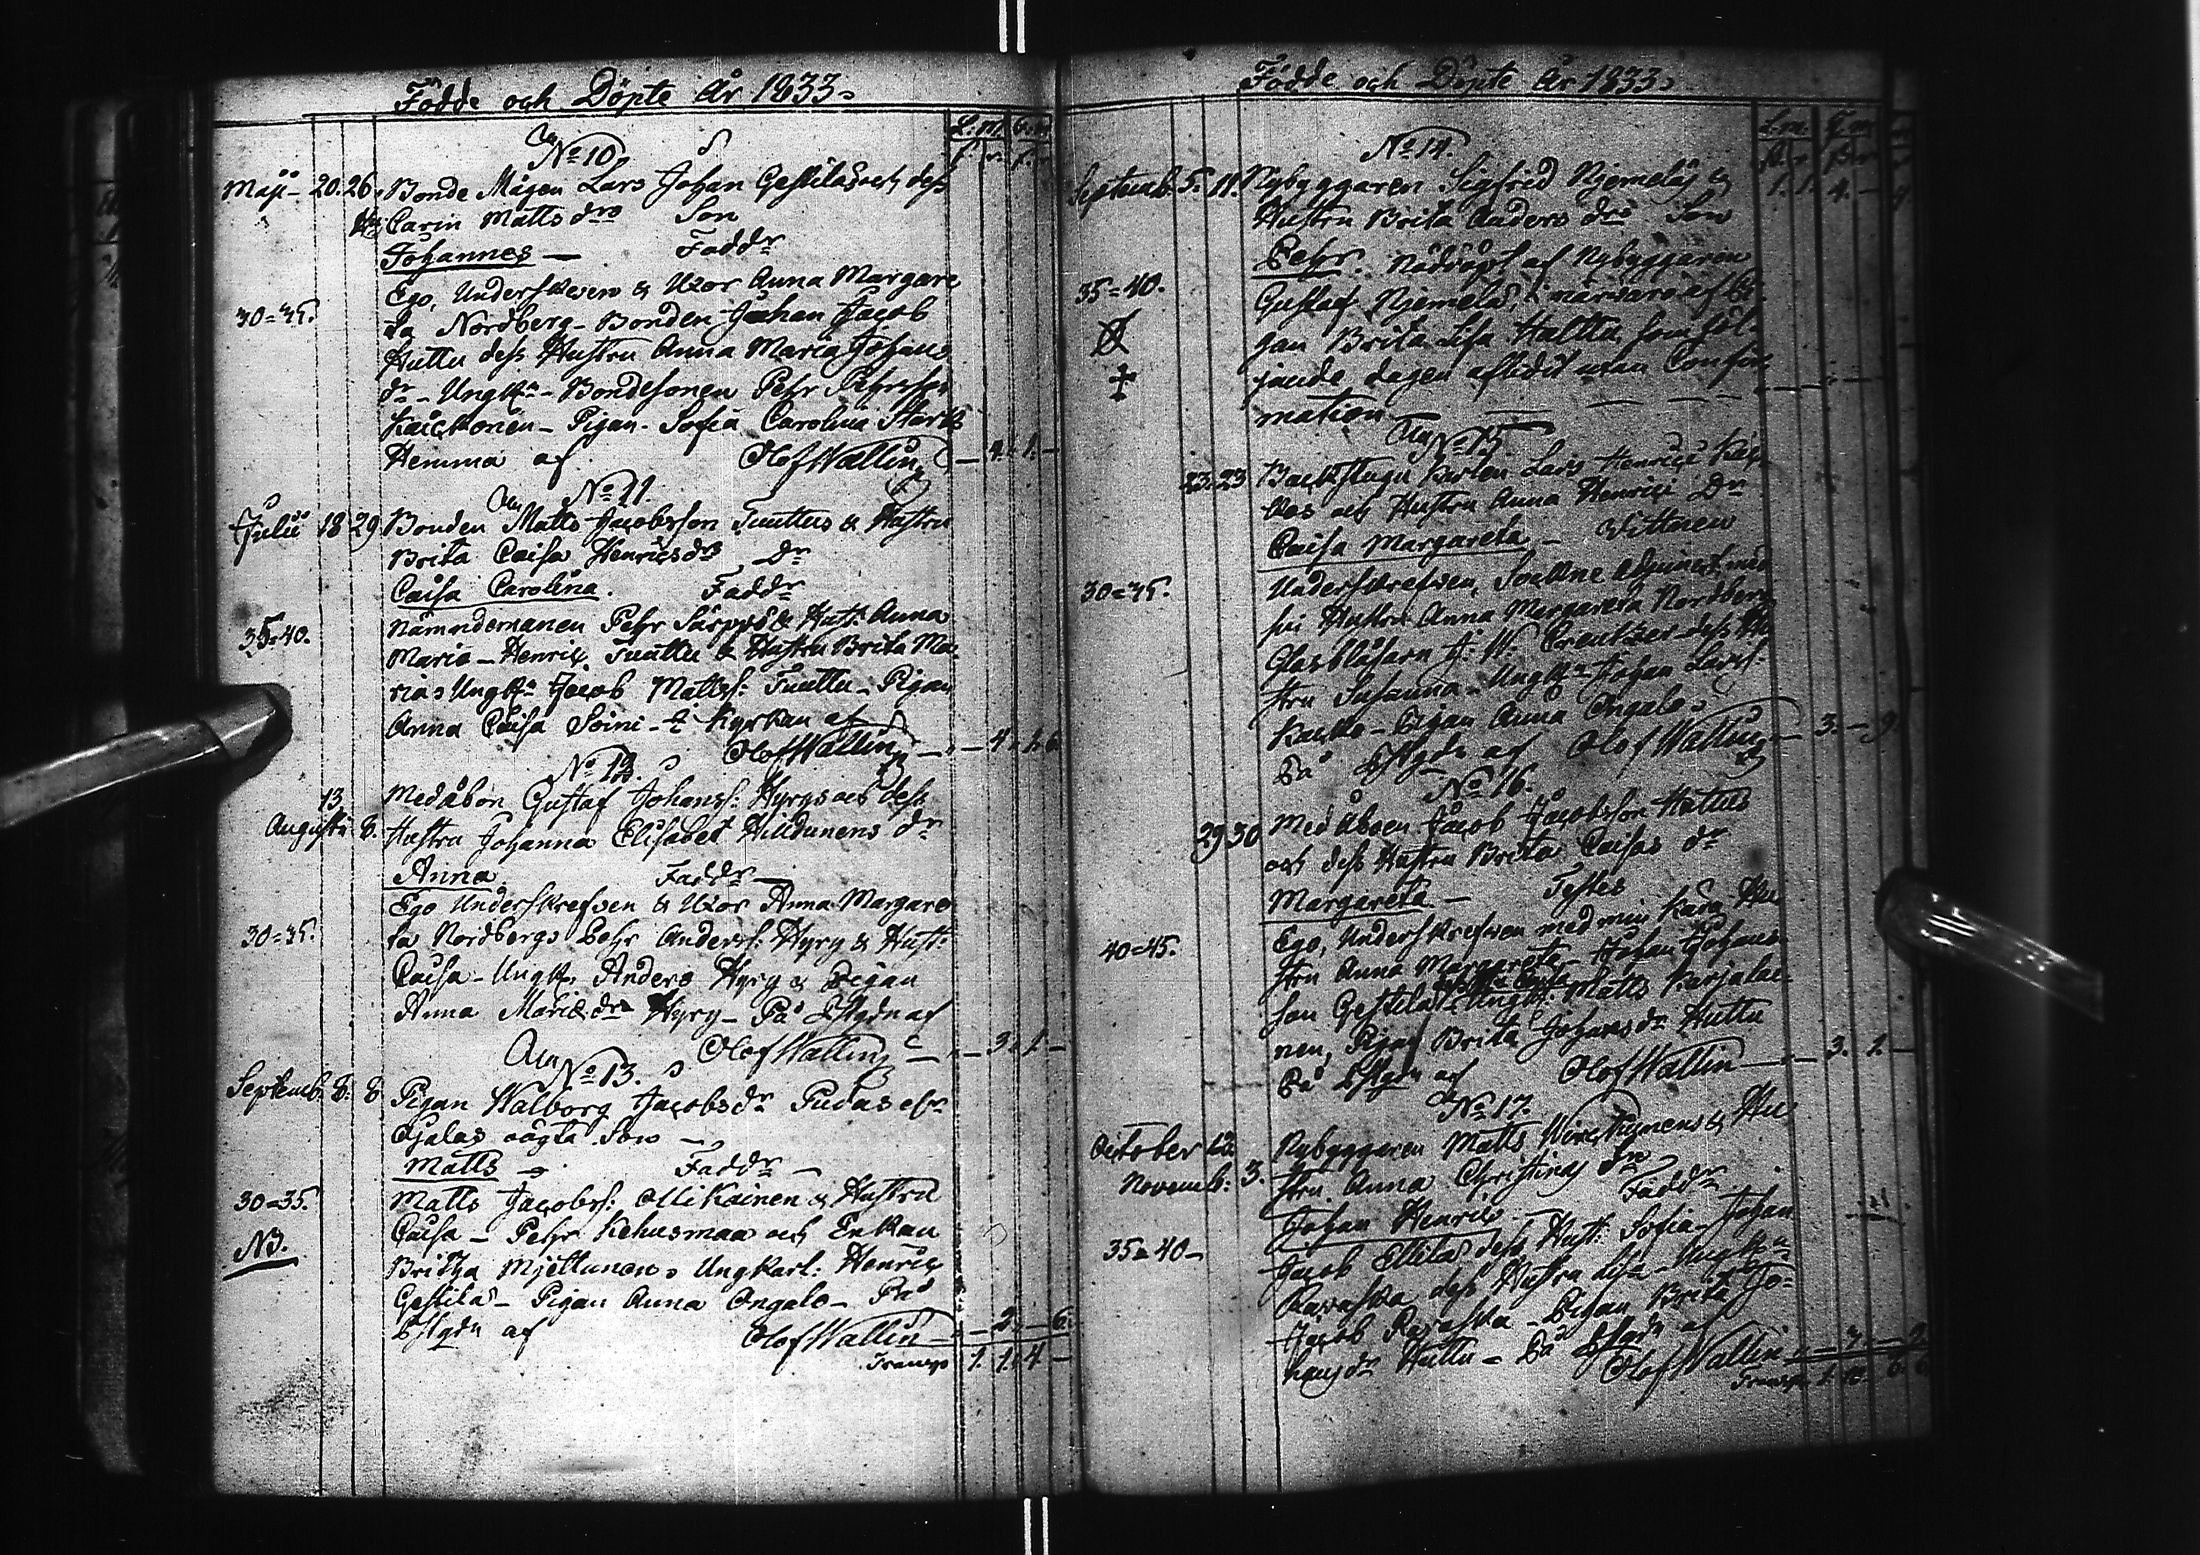 Födde och Döpte År 1833.
L:m. G:m
No 10.
Maji 20. 26. Bonde Mågen Lars Johan Gestilas och dess
Hu Carin Mattsdrs Son
Johannes — Faddr
Ego, Underskrefven & Uxor Anna Margare
30=35. ta Nordberg - Bonden Johan Jacob
Huttu dess Hustru Anna Maria Johans
dr - Ungkn - Bondesonen Pehr Pehrsson
Pigan - Sofia Carolina
Hemma af Olof Wallin — 4. 1. —
No 11.
Julii 18 29 Bonden Matts Jacobsson Tuuttus & Hustru
Brita Caisa Henricsdrs Dr
Caisa Carolina. Faddr
Nämndemanen Pehr Säppä & Hust: Anna
35=40. Maria - Henric Tuuttu & Hustru Brita Ma-
rias Ungkn Jacob Mattss: Tuuttu - Pigan
Anna Caisa Soini - i Kyrkan af
Olof Wallin — 4. 1. 6.
No 12.
13. Medåbon Gustaf Johanss: Hyrys och dess
Augusti 8. Hustru Johanna Elisabet Hilldunens dr
Anna Faddr —
Ego Underskrefven & Uxor Anna Margare
30=35. ta Nordbergs Pehr Anderss: Hyry & Hust:
Caisa - Ungk: Anders Hyry & Pigan
Anna Mariæ dr Hyry - På Pstgdn af
Olof Wallin — 3. 1. —
No 13.
Septemb: 8. 8 Pigan Walborg Jacobsdr Pudas
oägta Son —
Matts — Faddr —
30=35. Matts Jacobss: Ollikainen & Hustru
Caisa - Pehr Kehusmaa och Enkan
NB. Britha Mjettunen. Ungkarl: Henric
Gestilas - Pigan Anna Ongalo - På
Pstgdn af Olof Wallin — 2. 6.
Transp 1. 1. 4 —
Födde och Döpte År 1833.
L:m. G:m
No 14.
Septemb. 5. 11. Nybyggaren Sigfrid Njemeläs & 1. 1. 4. —
Hustru Brita Anders drs Son
Pehr. Nöddöpt af Nybyggaren
35=40. Gustaf Njemelä i närvaro af
gan Brita Lisa Huttu som föl-
jande dagen aflidit utan Confir-
mation —
No 15.
23. 23 Backstugu Karlen Lars Henrics
och Hustru Anna Henrici Dr
Caisa Margareta — Vittnen
Underskrefven, Soellne Adjunct med
30=35. sin Hustru Anna Margareta Nordberg
Glasblåsarn J: W. Creutzer dess Hu
stru Susanna - Ungkn Johan Larss:
Pigan Anna Ongalo.
På Pstgdn af Olof Wallin — 3. — 9.
No 16.
29 30 Medåboen Jacob Jacobsson Huttus
och dess Hustru Brita Caisas dr
Margareta — Testes
Ego, Underskrefven med min Kära Hu
40=45. stru Anna Margareta - Johan Johans-
son Gestilas Ungk: Matts Karjalai-
nen, Pigan Brita Johansdr Huttu
På Pstgdn af Olof Wallin — 3. 1. —
No 17.
October 12. Nybyggaren Matts & Hu
Novemb: 3. stru Anna Christinas drs
Johan Henric — Faddr
Jacob Ellilas dess Hust: Sofia - Johan
35=40 — Karaska dess Hustru Lisa - Ungkn
Jacob Karaska - Pigan Brita Jo-
hansdr Huttu - På Pstgdn af
Olof Wallin
Transp